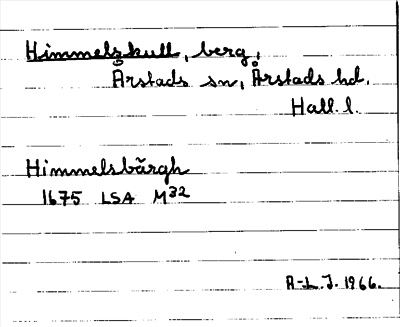 Himmelskull, berg,
Årstads sn, Årstads hd,
Hall. l.
Himmelsbärgh
1675 LSA M32
A-L.J. 1966.